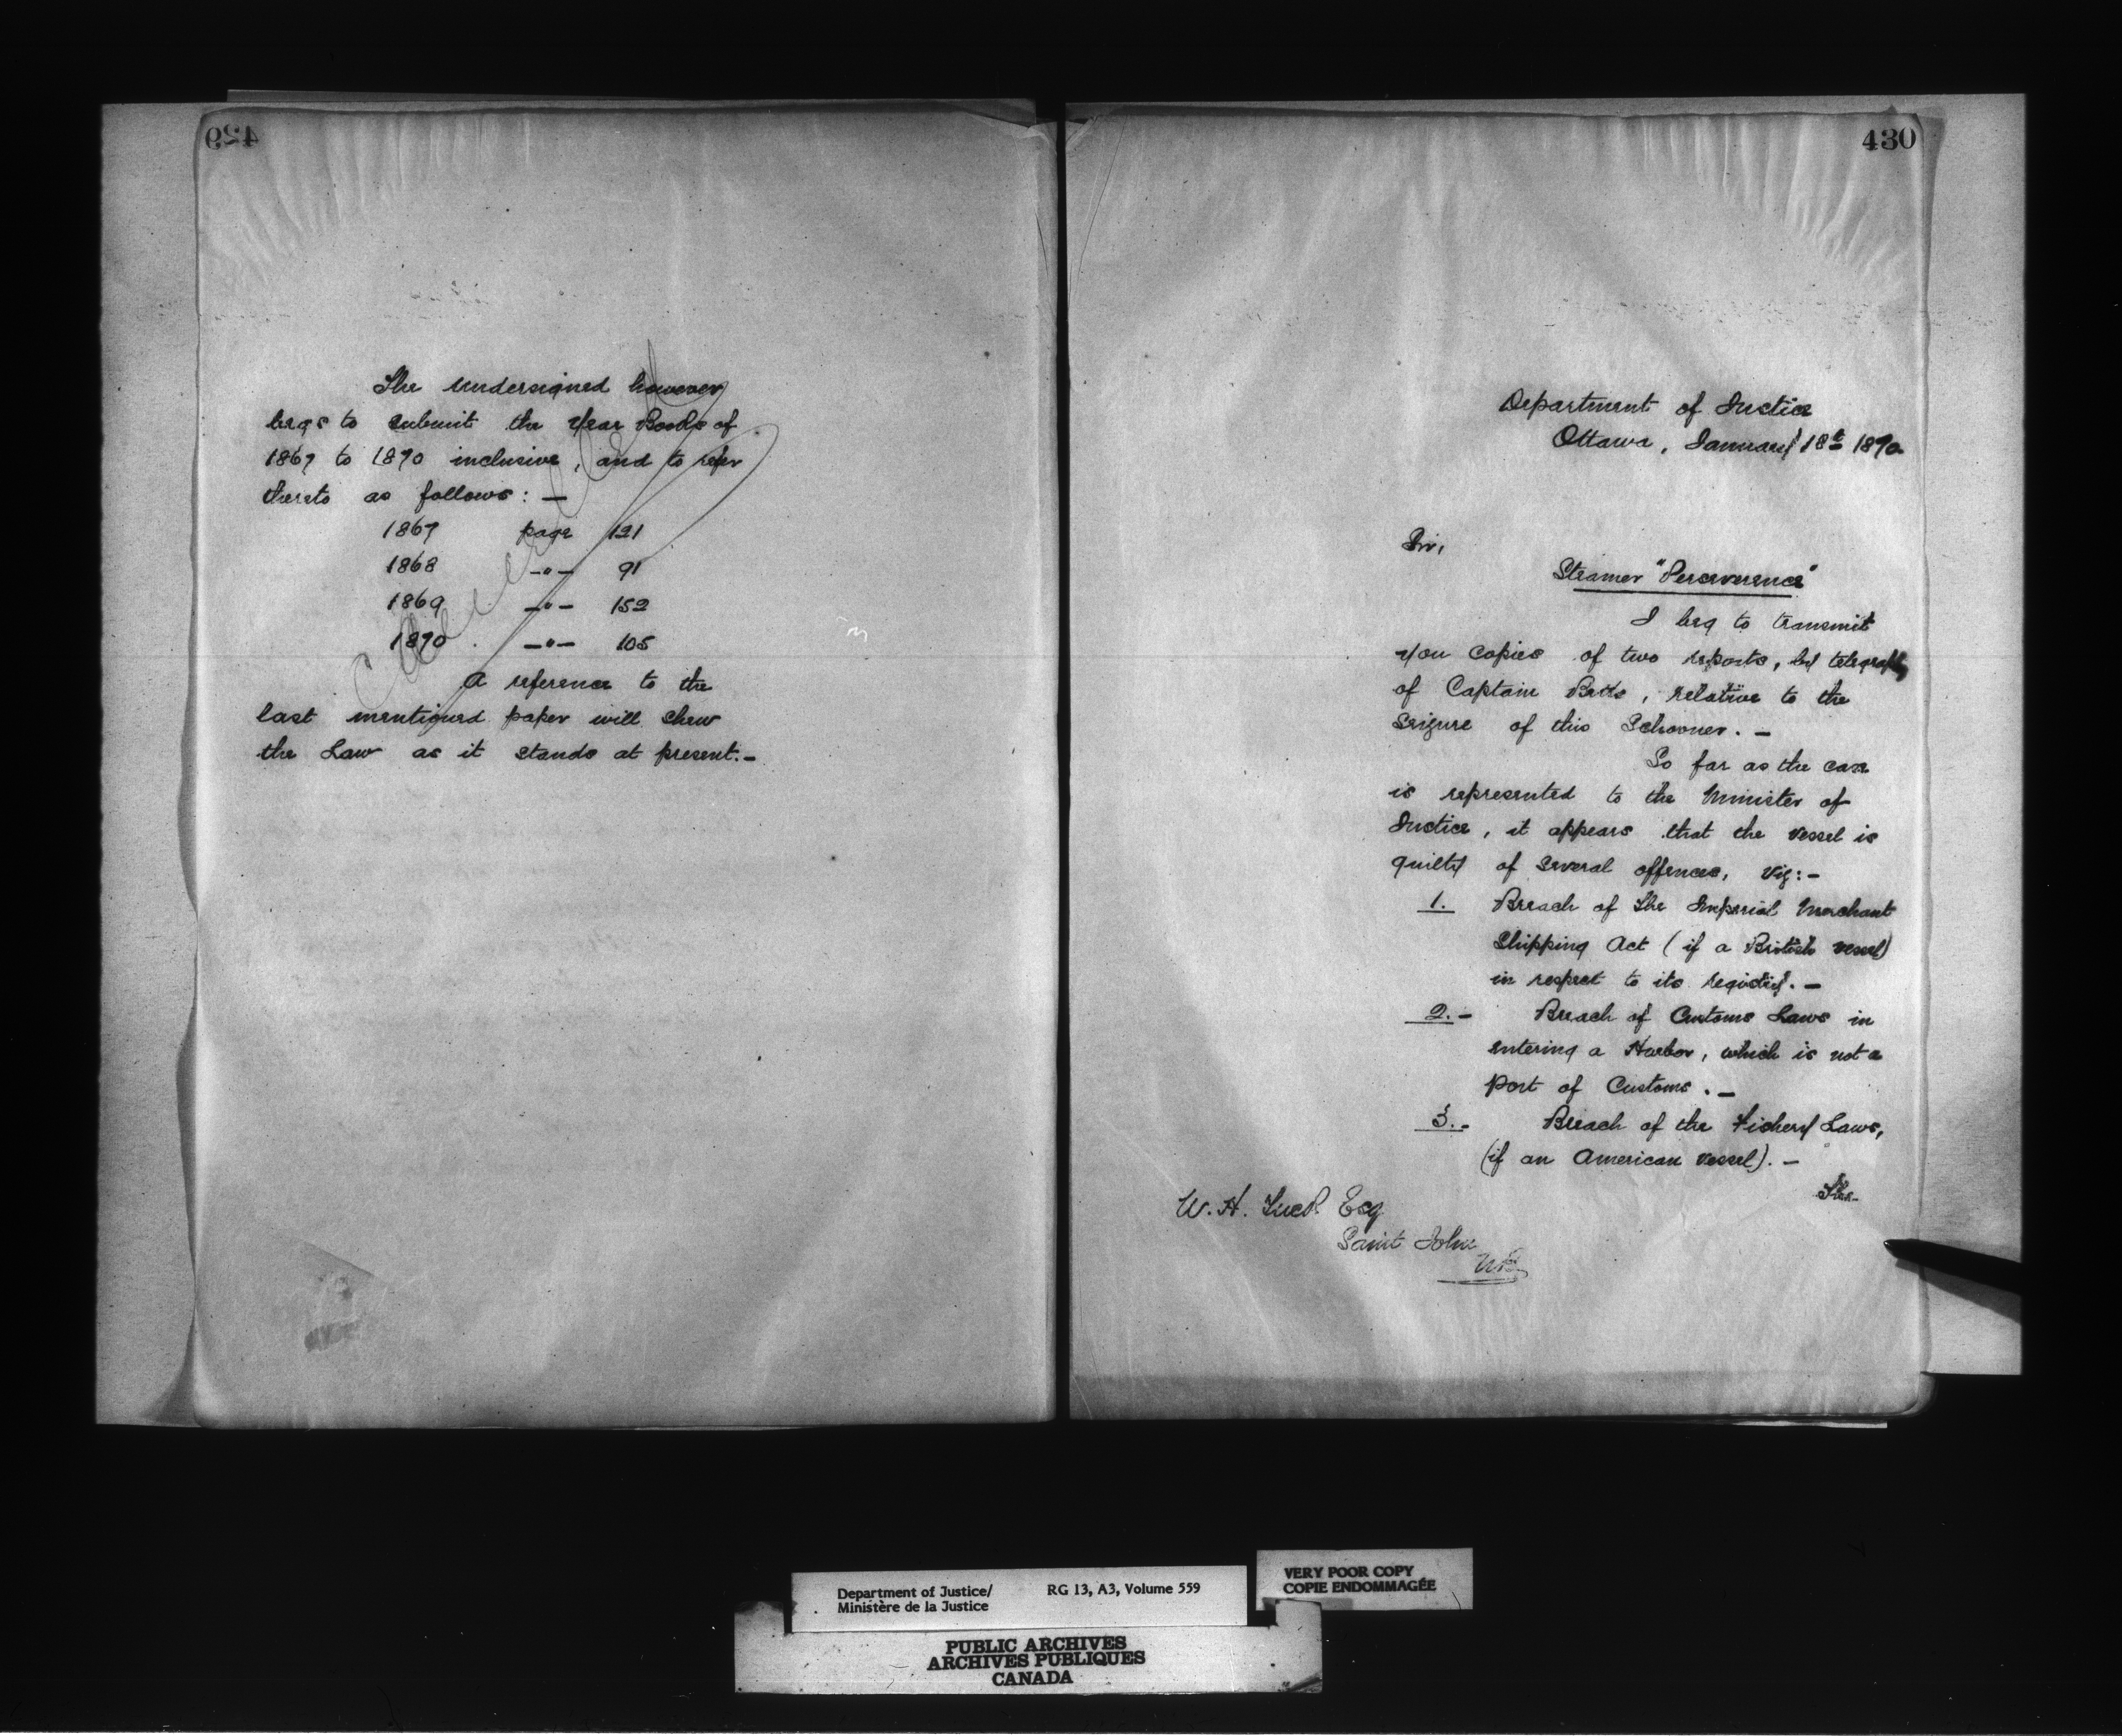 429
The undersigned however
begs to submit the Year Books of
1867 to 1870 inclusive, and to refer
thereto as follows: —
1867 page 121
1868 —"— 91
1869 —"— 152
1870 . —"— 105
A reference to the
last mentioned paper will shew
the Law as it stands at present. —
Cancelled
430
Department of Justice
Ottawa, January 18t 1870
Sir,
Steamer "Perseverence"
I beg to transmit
you copies of two reports, by telegraph,
of Captain Betts, relative to the
seizure of this Schooner. —
So far as the case
is represented to the Minister of
Justice, it appears that the vessel is
guilty of several offences, viz: —
1. Breach of the Imperial Merchant
Shipping Act (if a British vessel)
in respect to its registry. —
2. — Breach of Customs Laws in
entering a Harbor, which is not a
Port of Customs. —
3. — Breach of the Fishery Laws,
(if an American vessel). —
The
W. H. Tuck Esq
Saint John
NB
Department of Justice/ RG 13, A3, Volume 559
Ministère de la Justice
VERY POOR COPY
COPIE ENDOMMAGÉE
PUBLIC ARCHIVES
ARCHIVES PUBLIQUES
CANADA